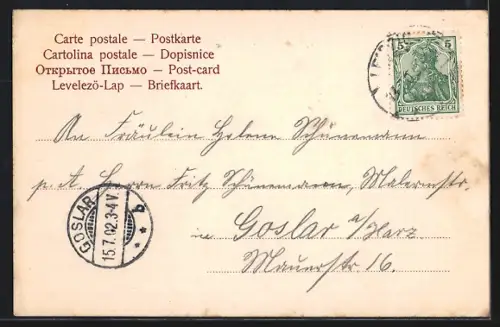 Carte postale — Postkarte
Cartolina postale — Dopisnice
Открытое Письмо — Post-card
Levelezö-Lap — Briefkaart.
5 5
DEUTSCHES REICH
An Fräulein Helene Schünemann
p. A. Herrn Fritz Schünemann, Malermstr.
in Goslar a/Harz
Mauerstr. 16.
GOSLAR
15.7.02.3-4V.
* b *